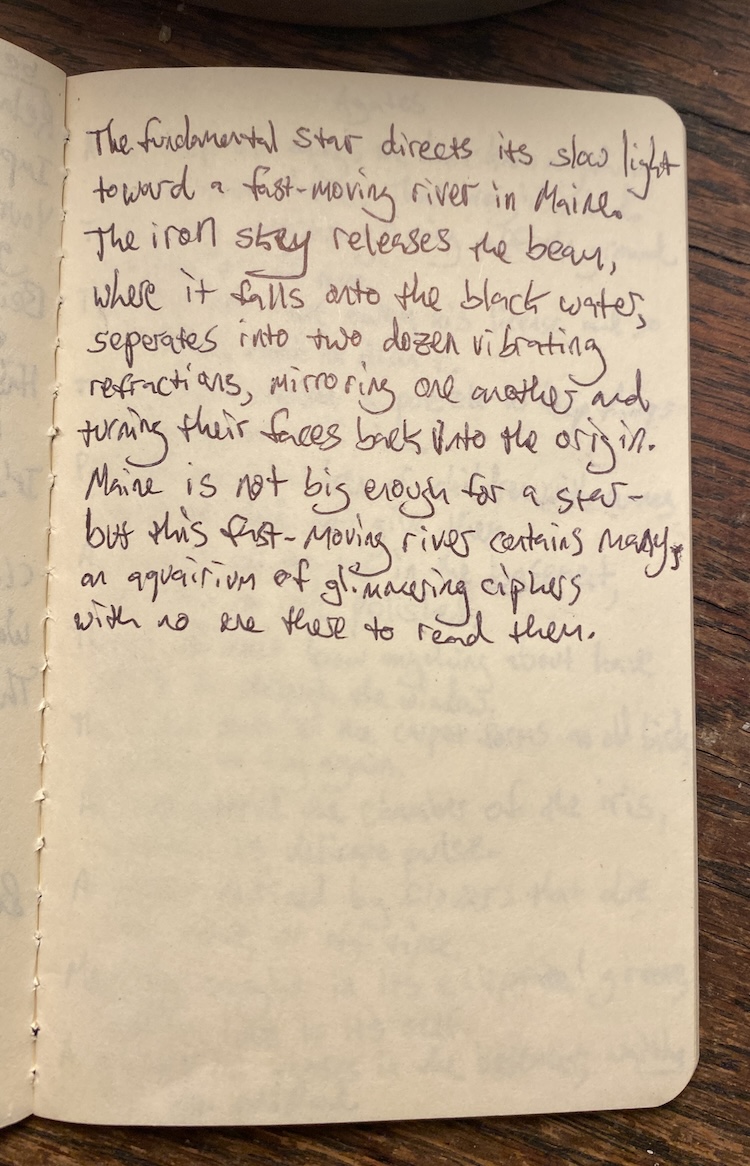 The fundamental star directs its slow light
toward a fast-moving river in Maine.
The iron sky releases the beam,
where it falls onto the black water,
seperates into two dozen vibrating
refractions, mirroring one another and
turning their faces back into the origin.
Maine is not big enough for a star-
but this fast-moving river contains many,
an aquairium of glimmering ciphers
with no one there to read them.